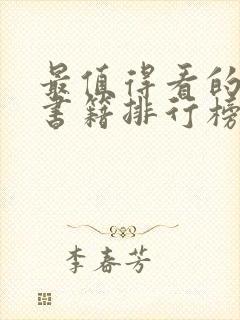 最值得看的
书籍排行榜
李春芳